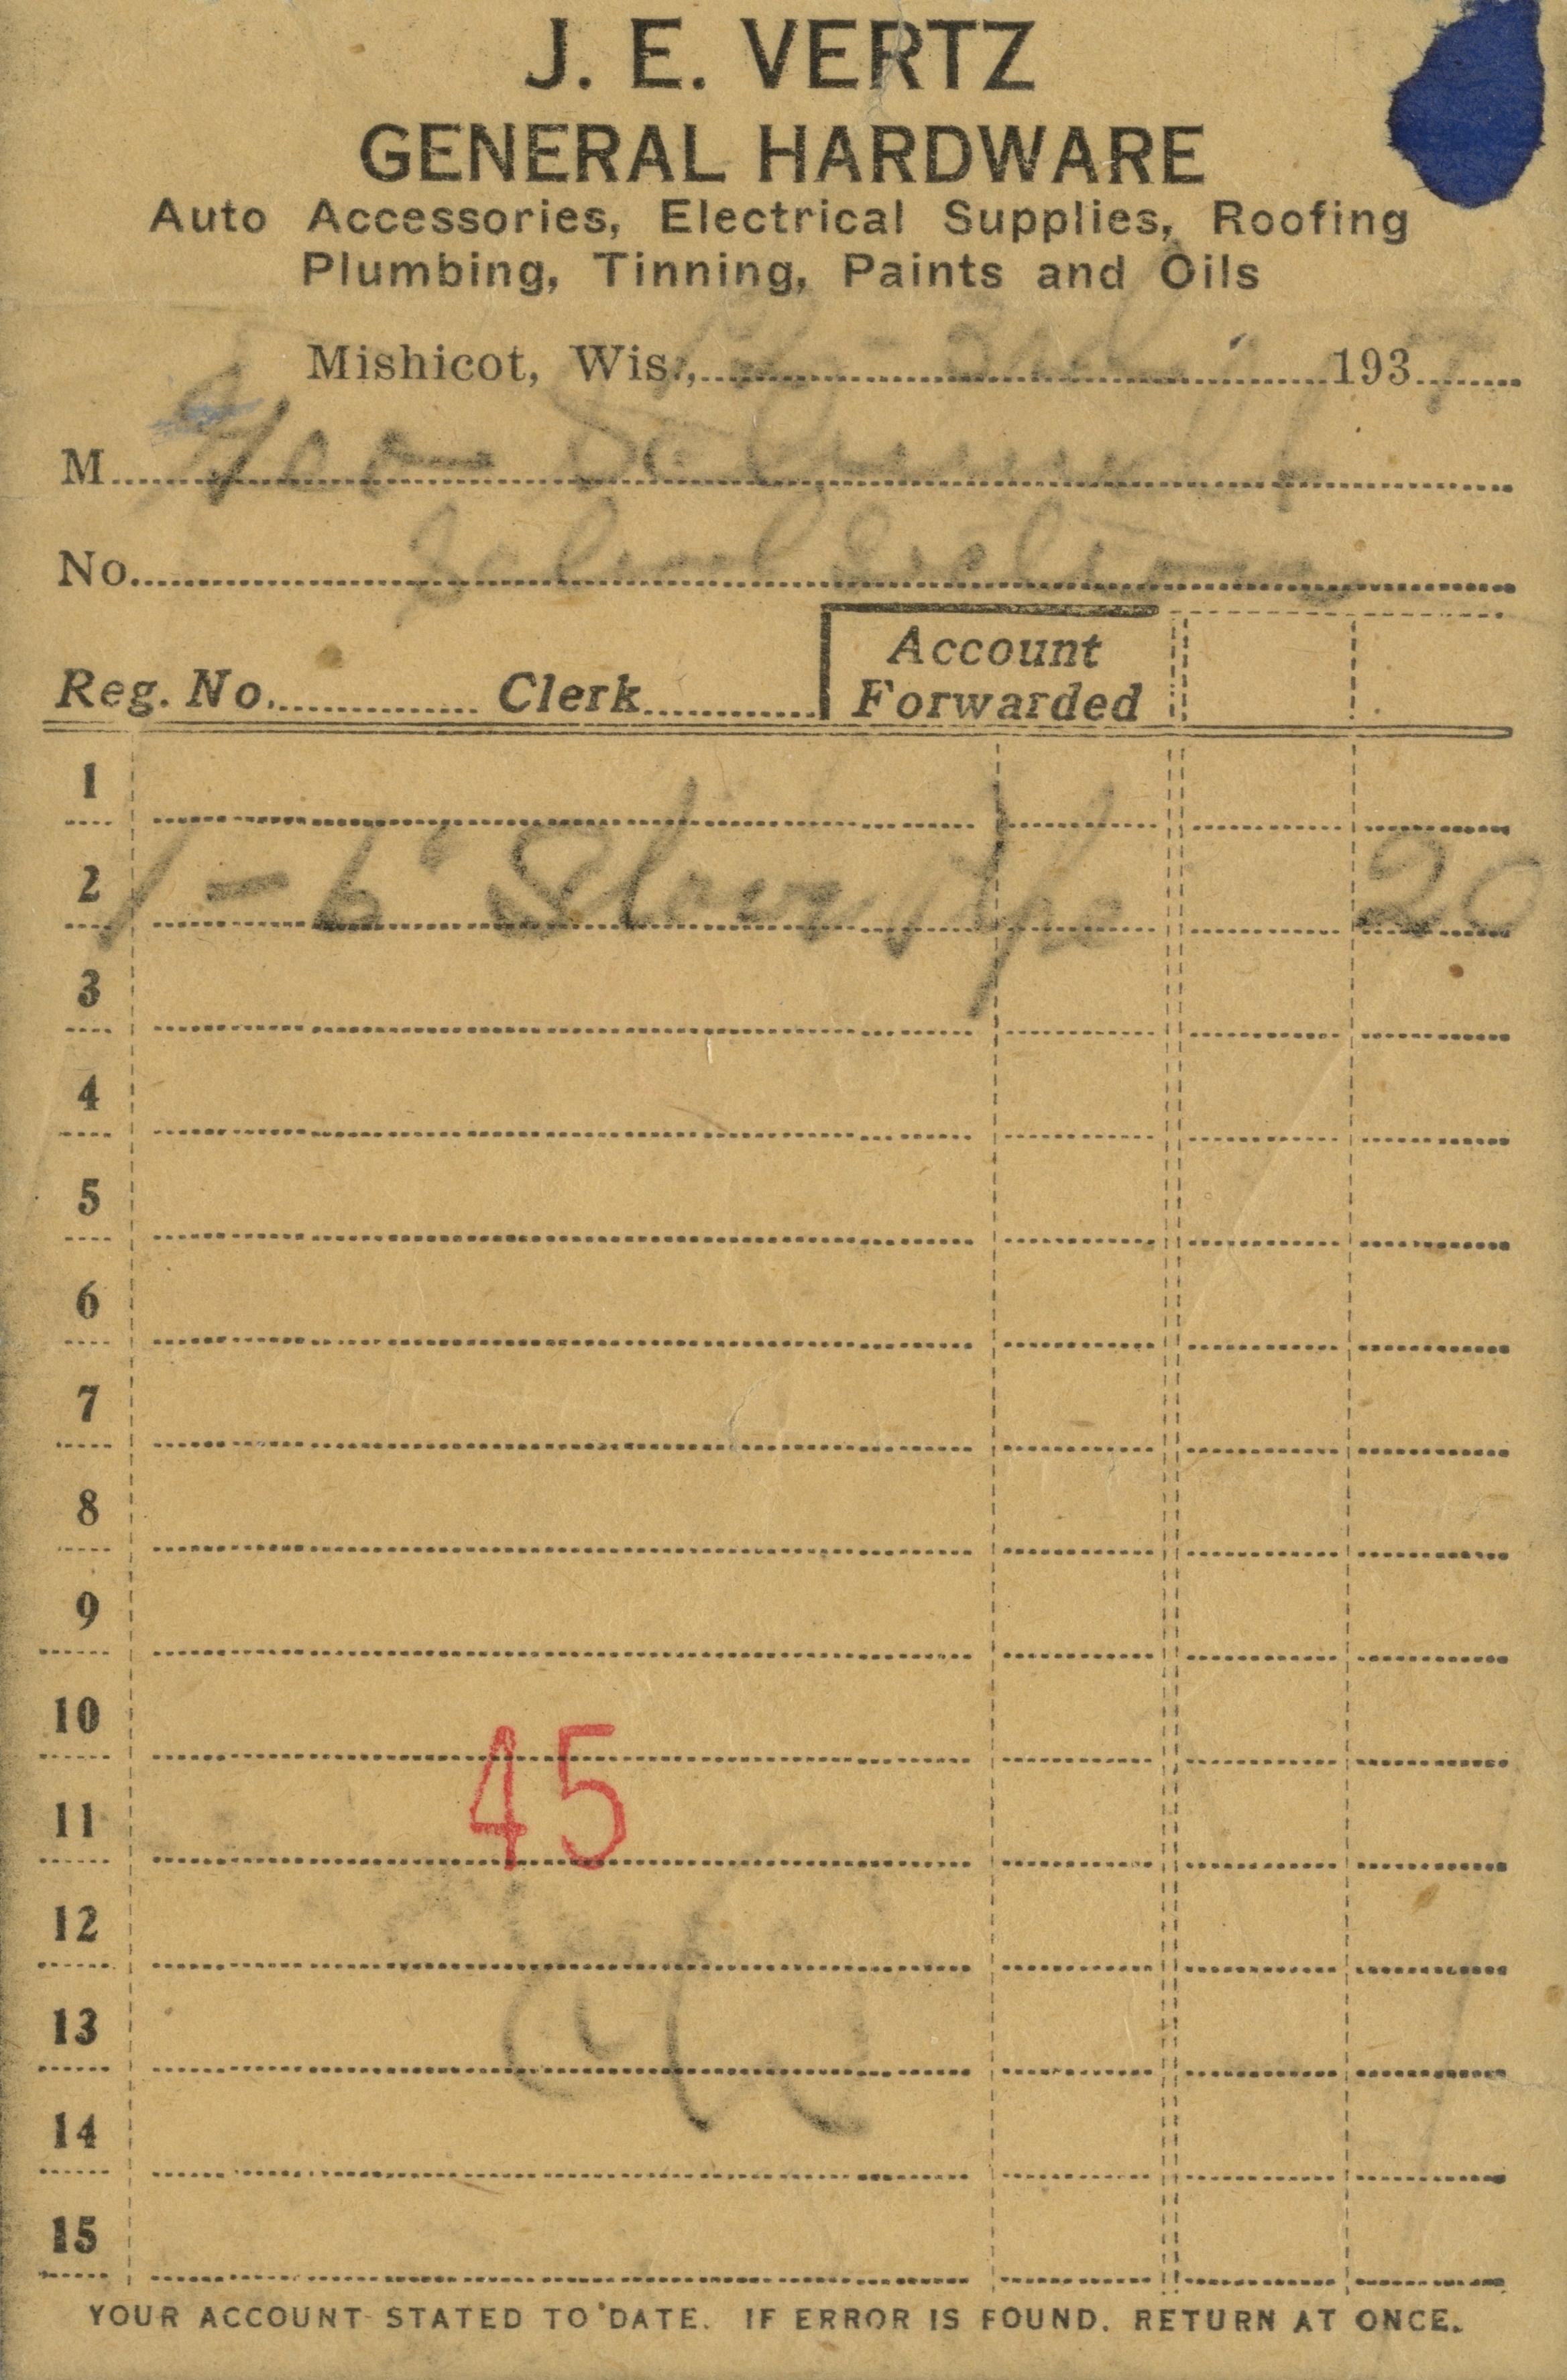 J. E. VERTZ
GENERAL HARDWARE
Auto Accessories, Electrical Supplies, Roofing
Plumbing, Tinning, Paints and Oils
Mishicot, Wis., 1937
M Geo
No. School
Reg. No. Clerk Account Forwarded
1
2 1 - 6" Stove pipe 20
3
4
5
6
7
8
9
10
45
11
12
13
14
15
YOUR ACCOUNT STATED TO DATE. IF ERROR IS FOUND, RETURN AT ONCE.